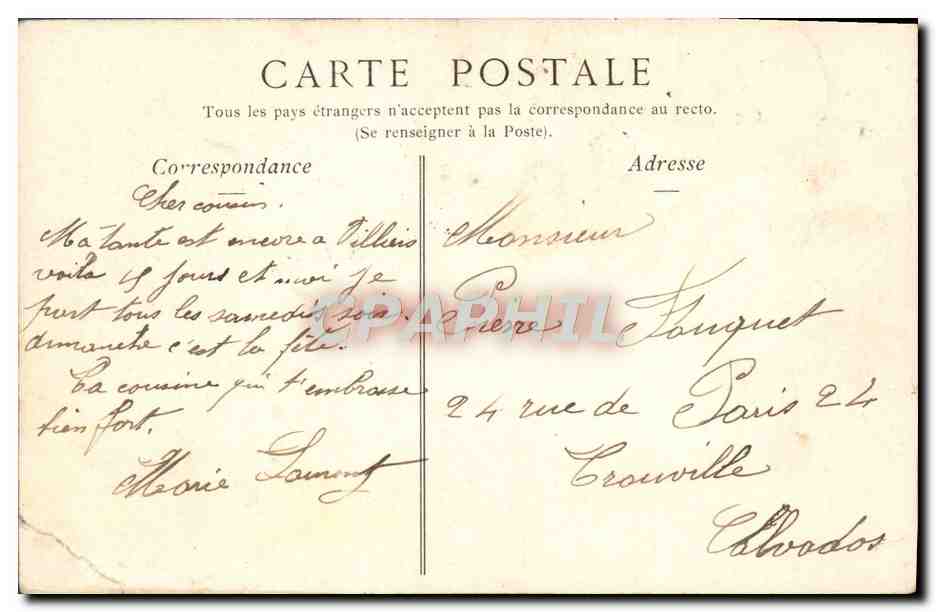 CARTE POSTALE
Tous les pays étrangers n'acceptent pas la correspondance au recto.
(Se renseigner à la Poste).
Correspondance
Cher cousin.
Ma tante est encore a Villiers
voila 15 jours et moi je
part tous les samedis soir.
dimanche c'est la fête.
Ta cousine qui t'embrasse
bien fort.
Marie Laurent
Adresse
Monsieur
Pierre Fouquet
24 rue de Paris 24
Trouville
Calvados
CPAPHIL